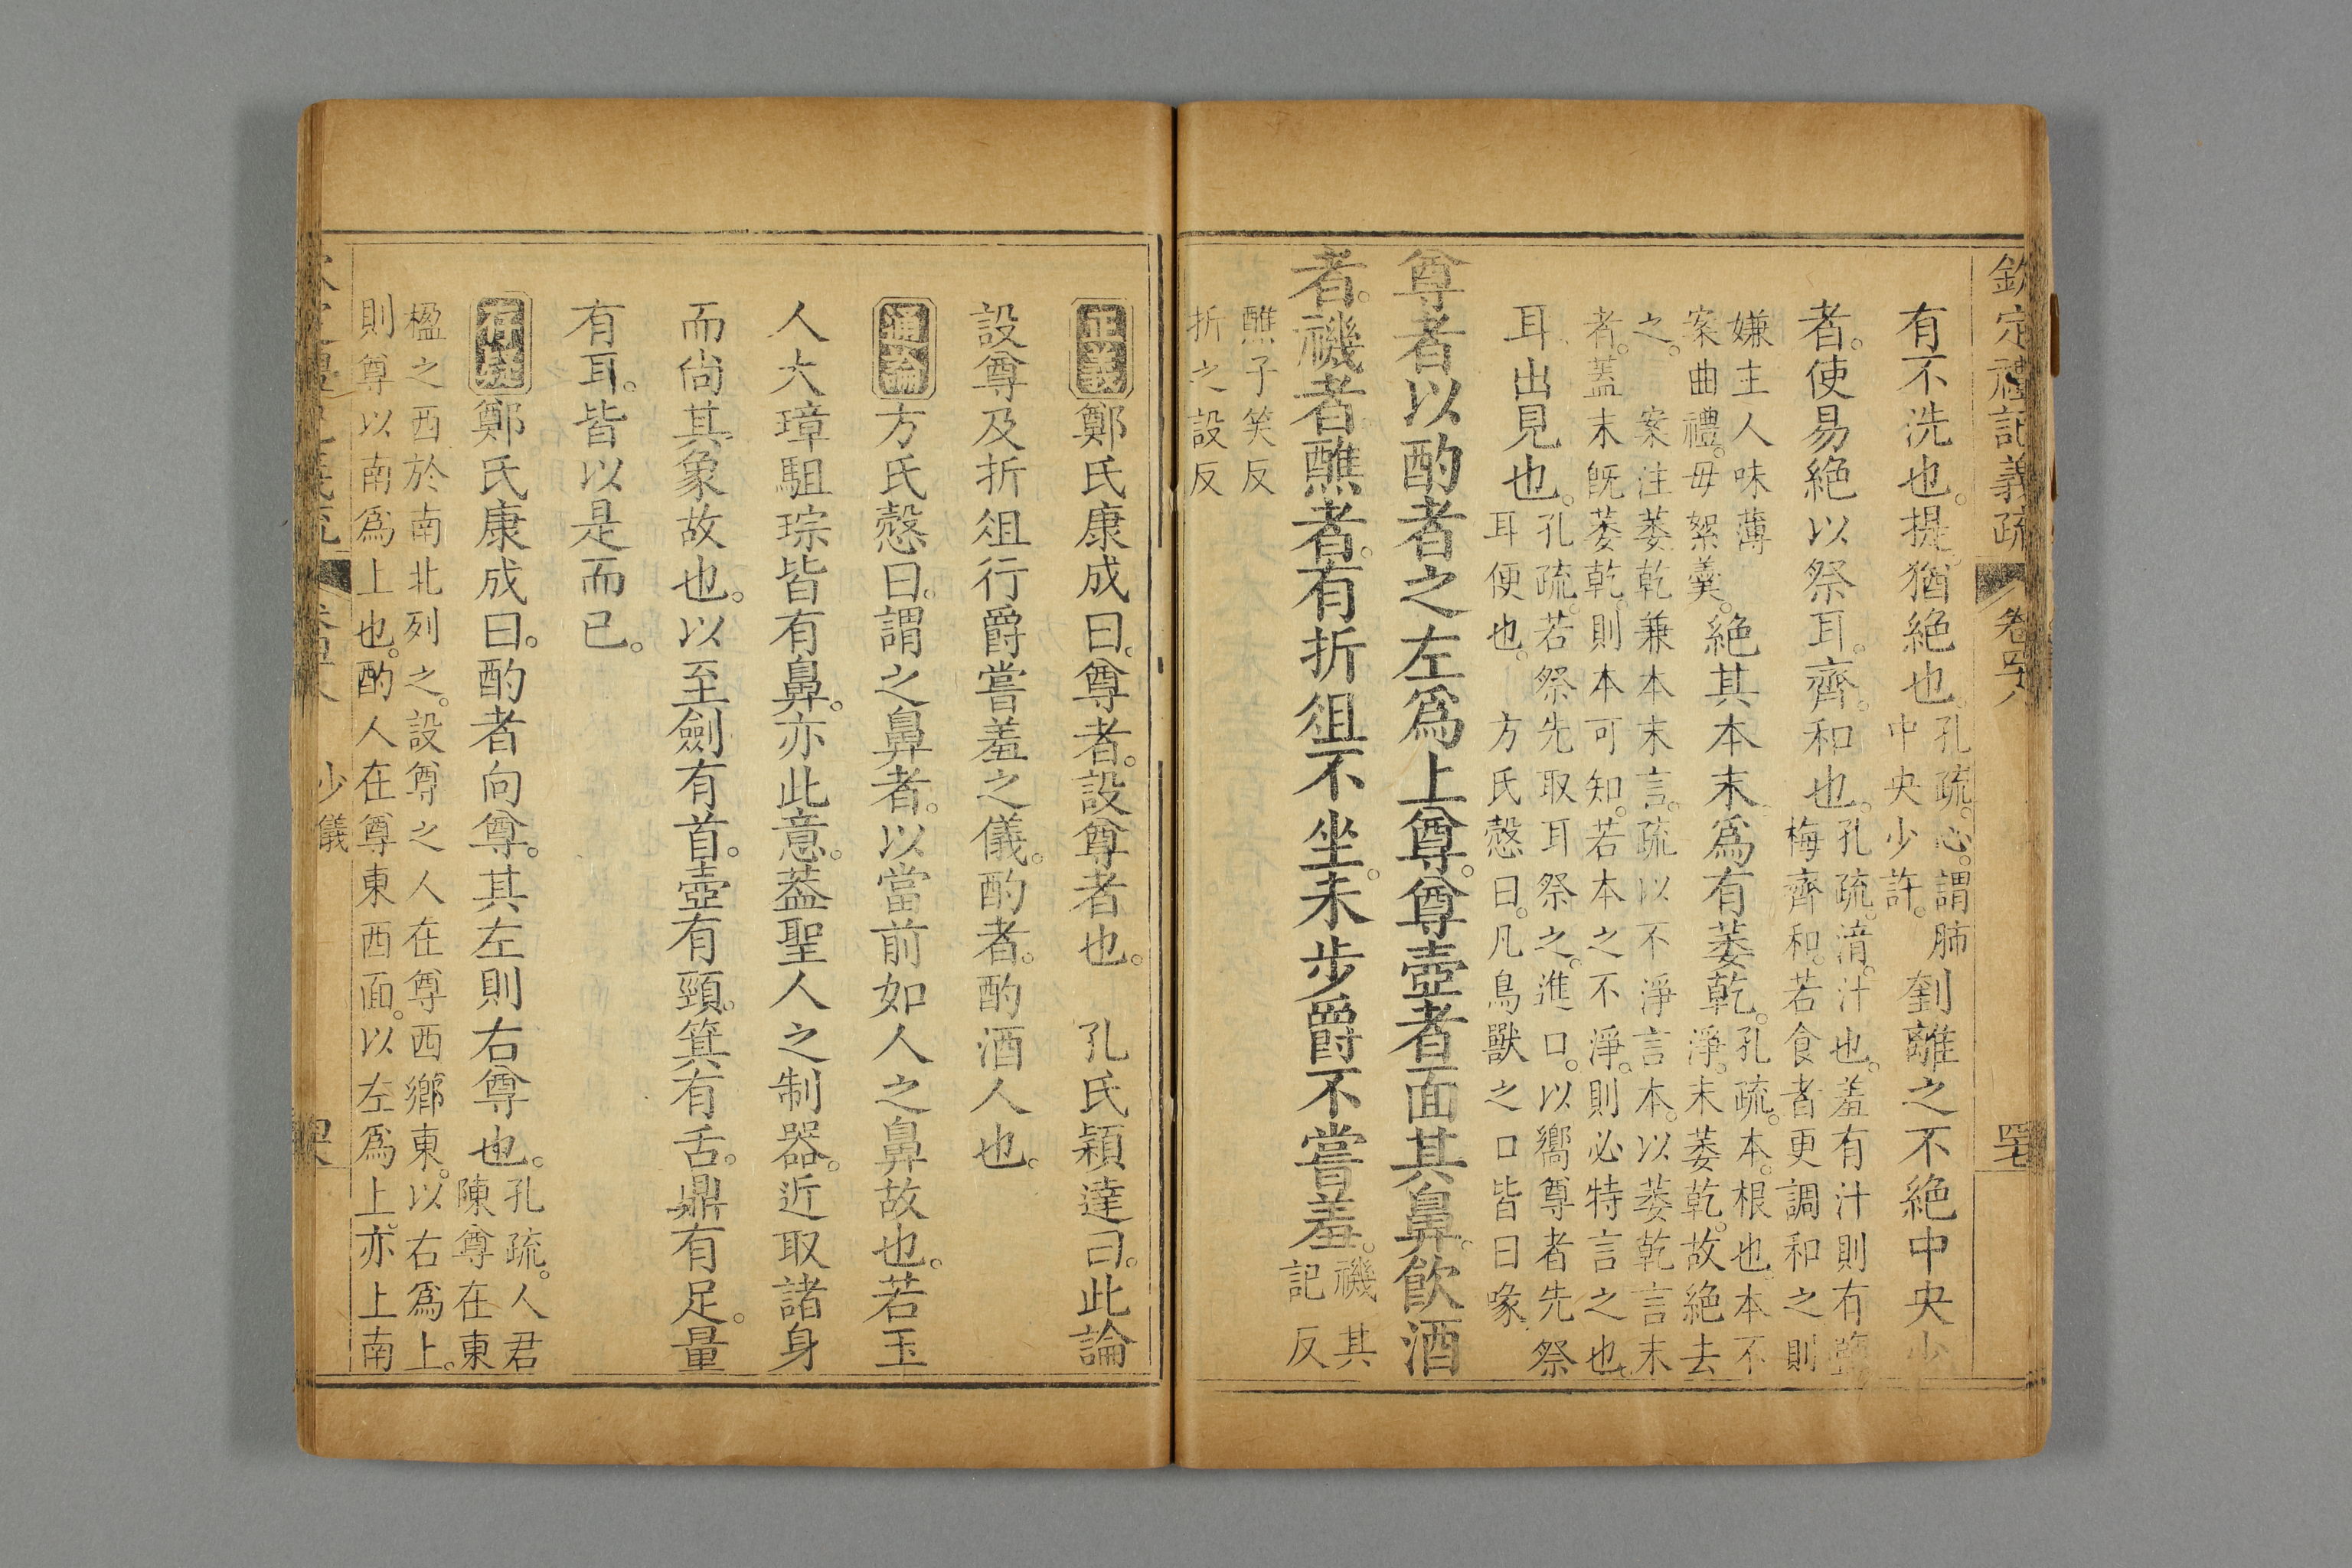 欽定禮記義疏 卷四十八 四十七
有不洗也。提猶絶也。孔疏。心。謂肺中央少許。刲離之不絶中央少
者。使易絶以祭耳。齊。和也。孔疏。湇。汁也。羞有汁則有鹽梅齊和。若食者更調和之則
嫌主人味薄案曲禮。毋絮羹。絶其本末爲有萎乾。孔疏。本。根也。本不淨。末萎乾。故絶去
之。 案注萎乾兼本末言。疏以不淨言本。以萎乾言末者。蓋末旣萎乾。則本可知。若本之不淨。則必特言之也。
耳出見也。孔疏。若祭先取耳祭之。進口。以嚮尊者先祭耳便也。 方氏慤曰。凡鳥獸之口皆曰喙
尊者以酌者之左爲上尊。尊壺者面其鼻。飮酒
者。禨者醮者。有折俎不坐。未步爵不嘗羞。禨其記反
醮子笑反折之設反
正義鄭氏康成曰。尊者。設尊者也。 孔氏穎達曰。此論
設尊及折俎行爵嘗羞之儀。酌者。酌酒人也。
通論方氏慤曰。謂之鼻者。以當前如人之鼻故也。若玉
人大璋駔琮皆有鼻。亦此意。葢聖人之制器。近取諸身
而尙其象故也。以至劍有首。壺有頸。箕有舌。鼎有足。量
有耳。皆以是而已。
存疑鄭氏康成曰。酌者向尊。其左則右尊也。孔疏。人君陳尊在東
楹之西於南北列之。設尊之人在尊西鄉東。以右爲上。
則尊以南爲上也。酌人在尊東西面。以左爲上。亦上南
少儀